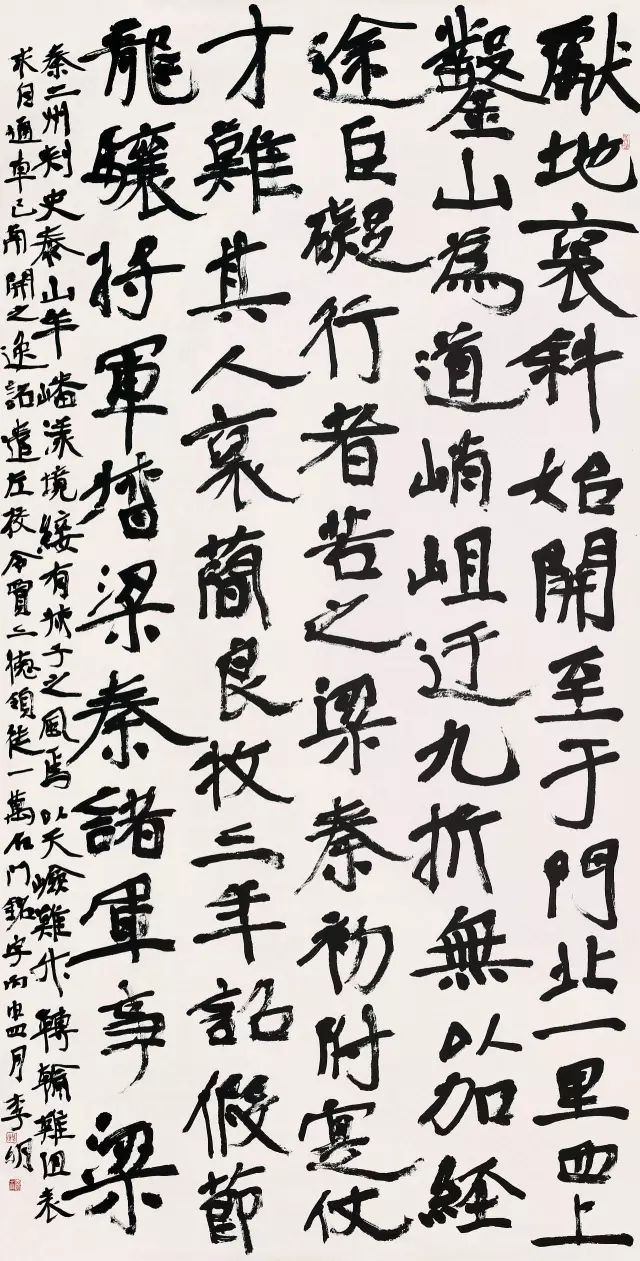 獻地裒斜始開至于門北一里西上
鑿山為道峭岨迂九折無以加經
途巨礙行者苦之梁秦初附寔仗
才難其人裒蕳良牧三年詔假節
龍驤將軍督梁秦諸軍事梁
秦二州刾史泰山羊嶓漾境綏有叔子之風焉以天嶮難升轉輸難阻表
求自迴車已南開之遂詔遣左校令賈三德領徒一萬石門銘字丙申四月李明